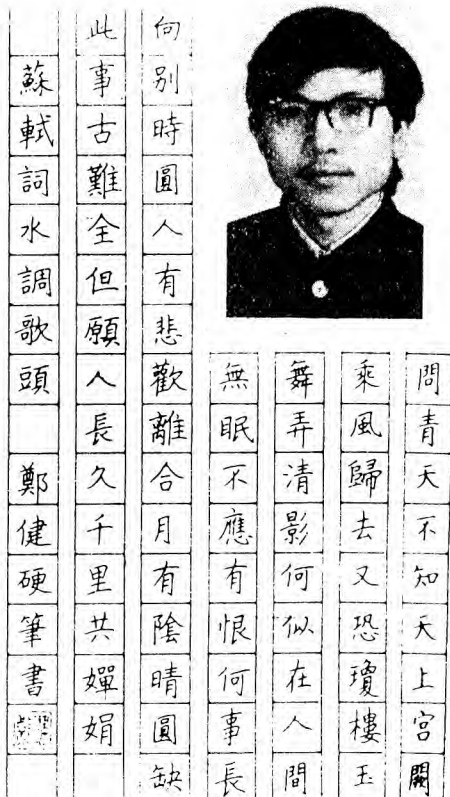 問青天不知天上宮闕
乘風歸去又恐瓊樓玉
舞弄清影何似在人間
無眠不應有恨何事長
向別時圓人有悲歡離合月有陰晴圓缺
此事古難全但願人長久千里共嬋娟
蘇軾詞水調歌頭 鄭健硬筆書